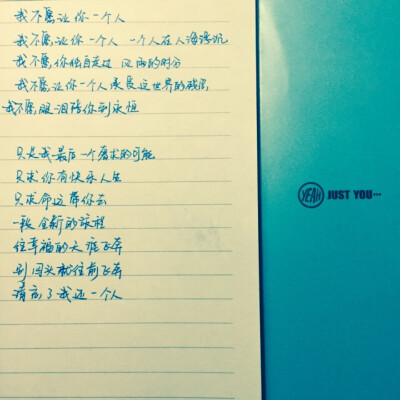 我不愿让你一个人
我不愿让你一个人 一个人在人海浮沉
我不愿你独自走过 风雨的时分
我不愿让你一个人 承受这世界的残忍
我不愿眼泪陪你到永恒
只是我最后一个奢求的可能
只求你有快乐人生
只求命运带你去
一段全新的旅程
往幸福的天涯飞奔
别回头就往前飞奔
请忘了我还一个人
YEAH JUST YOU...